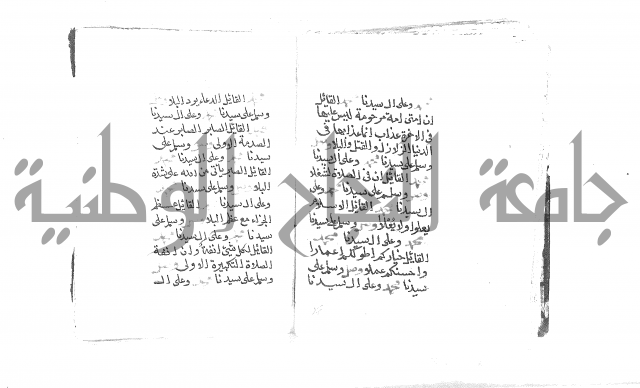 وعلى ال سيدنا القائل
ان امتي امة مرحومة ليس عليها
في الاخرة عذاب انما عذابها في
الدنيا الزلازل والقتل والبلاء
وسلم على سيدنا وعلى ال سيدنا
القائل ان في الصلاة لشغلا
وسلم على سيدنا وعلى
ال سيدنا القائل الاسلام
يعلوا ولا يعلا وسلم على سيدنا
محمد وعلى ال سيدنا
القائل خياركم اطولكم اعمارا
واحسنكم عملا وسلم على
سيدنا محمد وعلى ال سيدنا
القائل الدعاء يرد البلاء
وسلم على سيدنا وعلى ال سيدنا
القائل الصابر الصابر عند
الصدمة الاولى وسلم على
سيدنا وعلى ال سيدنا
القائل الصبر ياتي من الله على شدة
البلاء وسلم على سيدنا
وعلى ال سيدنا القائل عظم
الجزاء مع عظم البلاء وسلم على
سيدنا وعلى ال سيدنا
القائل لكل شيء انفة وان انفة
الصلاة التكبيرة الاولى
وسلم على سيدنا وعلى ال
جامعة النجاح الوطنية